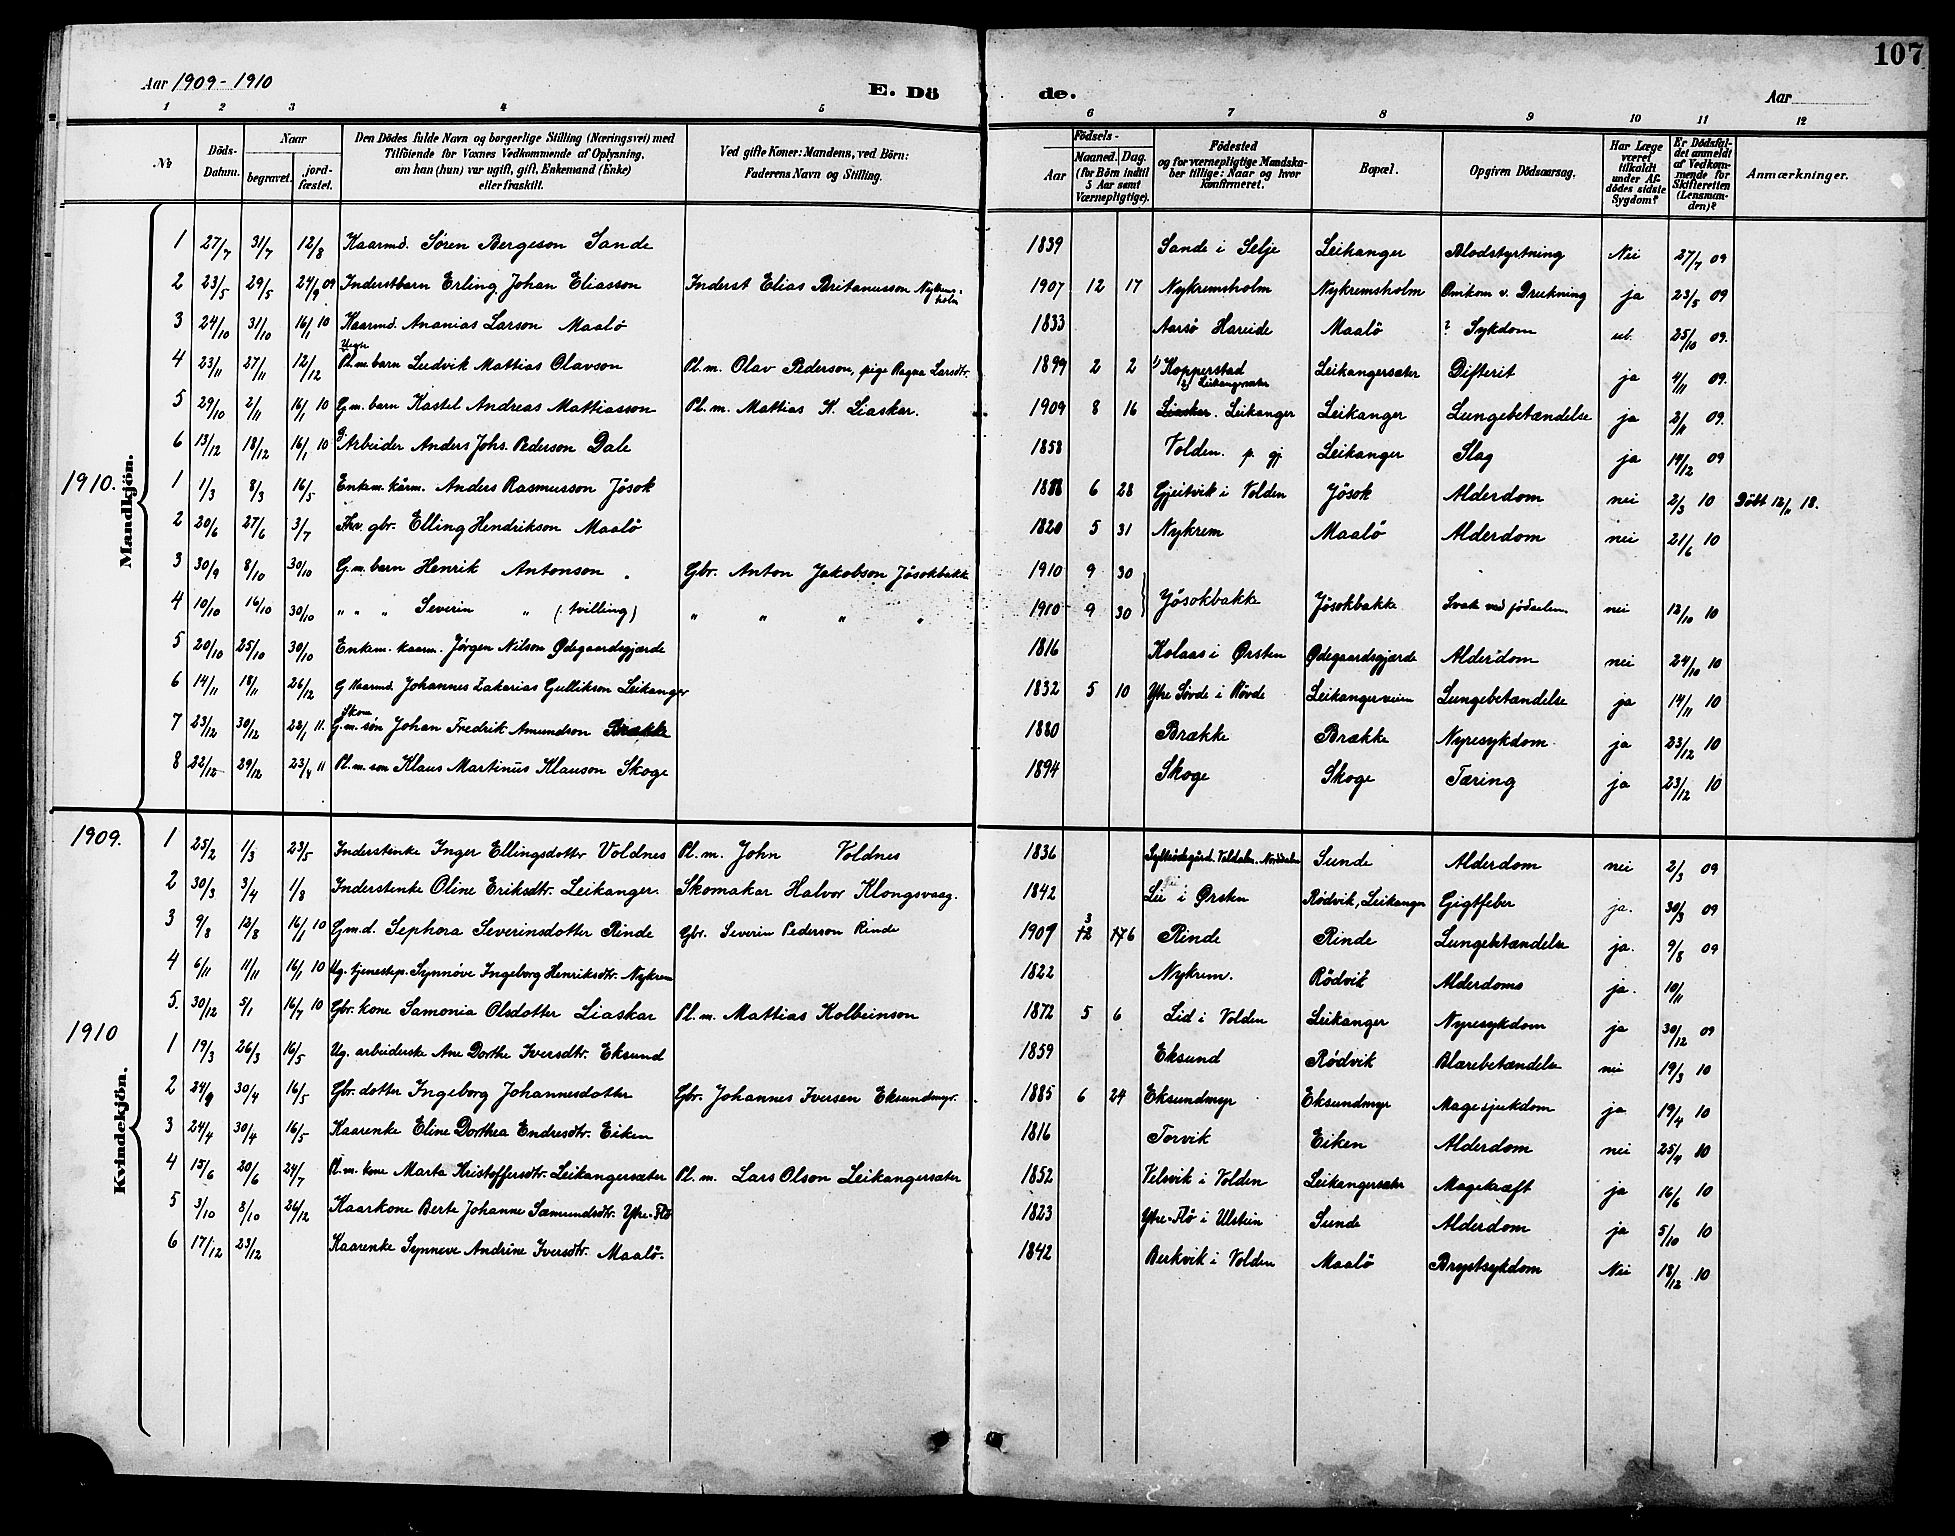 107
Aar 1909-1910 E. Dö de. Aar
1 2 3 4 5 6 7 8 9 10 11 12
No Döds-Datum. Naar begravet. jord-fæstet. Den Dödes fulde Navn og borgerlige Stilling (Næringsvei) med Tilföiende for Voxnes Vedkommende af Oplysning, om han (hun) var ugift, gift, Enkemand (Enke) eller fraskilt. Ved gifte Koner: Mandens, ved Börn: Faderens Navn og Stilling. Födsels- Aar Maaned. Dag. (for Börn indtil 5 Aar samt Værnepligtige). Födested og for værnepligtige Mandskaber tillige: Naar og hvor Konfirmeret. Bopæl. Opgiven Dödsaarsag. Har Læge været tilkaldt under Afdödes sidste Sygdom? Er Dödsfaldet anmeldt af Vedkommende for Skifteretten (Lensmanden)? Anmærkninger.
Mandkjön.
1 27/7 31/7 12/8 Kaarmd. Søren Bergeson Sande 1839 Sande i Selje Leikanger Blodstyrtning Nei 27/7 09
2 23/5 29/5 24/9 09 Inderstbarn Erling Johan Eliasson Inderst Elias Britanusson Nykremsholm 1907 12 17 Nykremsholm Nykremsholm Omkom v. Drukning ja 23/5 09
3 24/10 31/10 16/1 10 Kaarmd. Ananias Larson Maalö 1833 Aarsø Hareide Maalö ? Sykdom 25/10 09.
4 23/11 27/11 12/12 Uegte Pl.m. barn Ludvik Mattias Olavson Pl. m. Olav Pederson, pige Ragna Larsdtr. 1899 2 2 1) Kopperstad 2) Leikangersæter Leikangersæter Difterit ja 4/11 09.
5 29/10 2/11 16/1 10 G.m. barn Kastel Andreas Mattiasson Pl. m. Mattias K. Liaskar. 1909 8 16 Liaskar. Leikanger Leikanger Lungebetændelse ja 2/11 09.
6 13/12 18/12 16/1 10 G. Arbeider Anders Johs. Pederson Dale 1858 Volden. p. gj Leikanger Slag ja 14/12 09
1910.
1 1/3 8/3 16/5 Enkem. kårm. Anders Rasmusson Jösok 1818 6 28 Gjeitvik i Volden Jösok Alderdom nei 2/3 10 Döbt 12/11 18.
2 20/6 27/6 3/7 Fhv. gbr. Elling Hendrikson Maalö 1820 5 31 Nykrem Maalö Alderdom nei 21/6 10
3 30/9 8/10 30/10 G.m. barn Henrik Antonson Gbr. Anton Jakobson Jösokbakke 1910 9 30
4 10/10 16/10 30/10 " " " Severin " (tvilling) " " " " 1910 9 30 Jösokbakke Jösokbakke Svak ved födselen nei 12/10 10
5 20/10 25/10 30/10 Enkem. kaarm. Jørgen Nilson Ødegaardsgjærde 1816 Kolaas i Ørsten Ødegaardsgjærde Alderdom nei 24/10 10
6 14/11 18/11 26/12 G Kaarmd. Johannes Zakarias Gullikson Leikanger 1832 5 10 Ytre Sövde i Rövde Leikanger Lungebetændelse ja 14/11 10
7 23/12 30/12 22/1 11. G.m. søn Johan Fredrik Amundson Brække 1880 Brække Brække Nyresykdom. ja 23/12 10
8 22/12 29/12 23/4 11 Pl.m. søn Klaus Martinus Klauson Skoge 1894 Skoge Skoge Tæring ja 23/12 10
Kvindekjön.
1909.
1 25/2 1/3 23/5 Inderstenke Inger Ellingsdottr Voldnes Pl. m. John Voldnes 1836 Sunde Alderdom nei 2/3 09
2 30/3 3/4 1/8 Inderstenke Oline Eriksdtr. Leikanger. Skomakar Halvor Klongsvaag. 1842 Lie i Ørsten Rödvik, Leikanger Gigtfeber ja. 30/3 09
3 9/8 12/8 16/1 10 Gm.d. Sephora Severinsdotter Rinde Gbr. Severin Pederson Rinde 1909 3 12 17 6 Rinde Rinde Lungebetændelse ja. 9/8 09
4 6/11 11/11 16/1 10 Ug. tjenestep. Synnöve Ingeborg Henriksdtr. Nykrem 1822 Nykrem. Rödvik Alderdoms ja. 10/11
5. 30/12 5/1 16/7 10 Gbr. kone Samonia Olsdotter Liaskar Pl. m. Mattias Kolbeinson 1872 5 6 Lid i Volden Leikanger Nyresykdom ja 30/12 09
1910
1 19/3 26/3 16/5 Ug. arbeiderske Ane Dorthe Iversdtr. Eksund 1859 Eksund Rødvik Blærebetændelse nei 19/3 10
2 24/4 30/4 16/5 Gbr. dotter Ingeborg Johannesdotter Gbr. Johannes Iversen Eksundmyr. 1885 6 24 Eksundmyr Eksundmyr Magesjukdom ja 19/4 10
3 24/4 30/4 16/5 Kaarenke Eline Dorthea Endresdtr. Eiken 1816 Torvik Eiken Alderdom nei 25/4 10
4 15/6 20/6 24/7 Pl. m. kone Marta Kristoffersdtr. Leikangersæter Pl. m. Lars Olson Leikangersæter 1852 Velsvik i Volden Leikangersæter Magekræft ja 16/6 10
5 3/10 8/10 26/12 Kaarkone Berte Johanne Sæmundsdtr. Ytre-Flö 1823 Ytre-Flö i Ulstein Sunde Alderdom ja 5/10 10
6 17/12 23/12 Kaarenke Synneve Andrine Iversdtr. Maalö. 1842 Berkvik i Volden Maalö Brystsykdom Nei 18/12 10